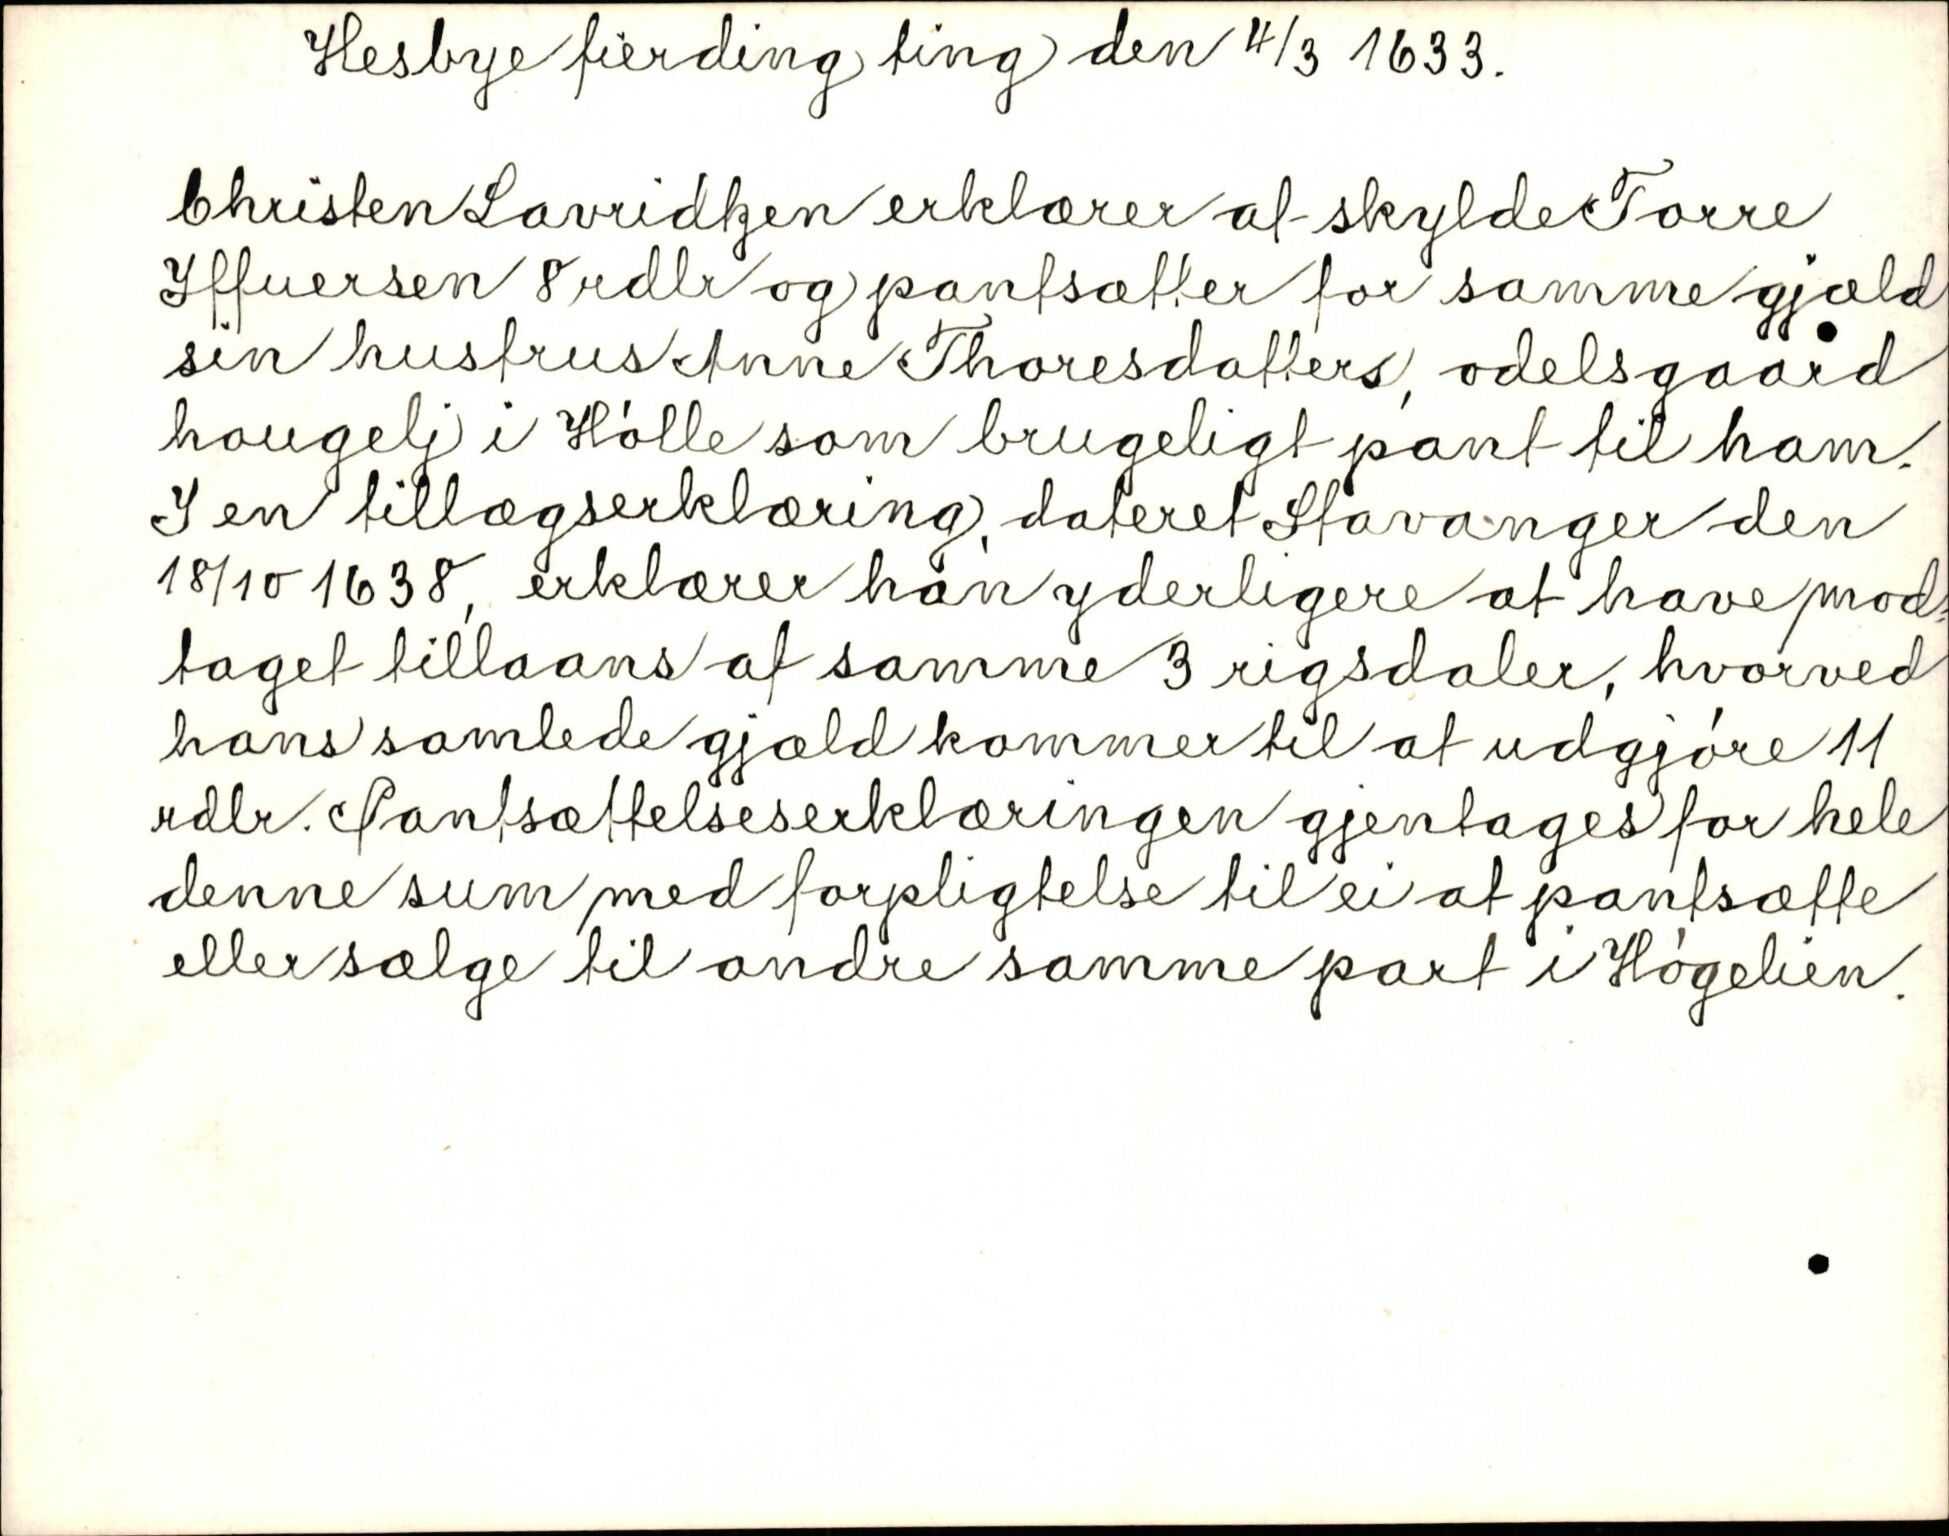 Hesbye fierding ting den 4/3 1633.
Christen Lavridtzen erklærer at skylde Torre
Yffuersen 8 rdlr og pantsætter for samme gjæld
sin hustrus Anne Thoresdatters, odelsgaard
hougelj i Hólle som brugeligt pant til ham.
I en tillægserklæring, dateret Stavanger den
18/10 1638, erklærer han yderligere at have mod-
taget tillaans af samme 3 rigsdaler, hvorved
hans samlede gjæld kommer til at udgjóre 11
rdlr. Pantsættelseserklæringen gjentages for hele
denne sum med forpligtelse til ei at pantsætte
eller sælge til andre samme part i Hógelien.